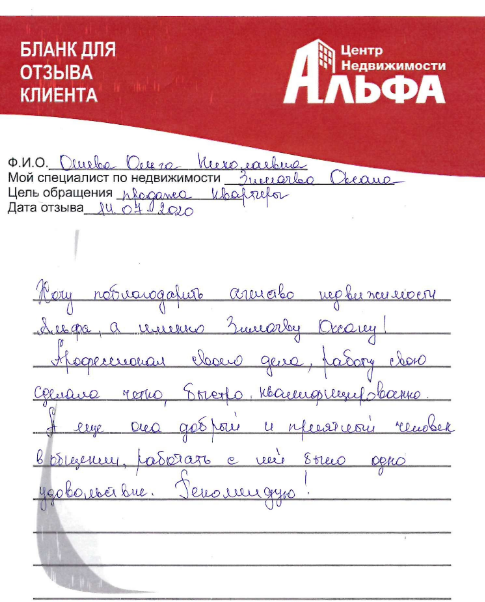 БЛАНК ДЛЯ
ОТЗЫВА
КЛИЕНТА
Центр
Недвижимости
АЛЬФА
Ф.И.О. Ошева Ольга Николаевна
Мой специалист по недвижимости Зимачва Оксана
Цель обращения продажа квартиры
Дата отзыва 14.07.2020
Хочу поблагодарить агенство недвижимости
Альфа, а именно Зимачву Оксану!
Профессионал своего дела, работу свою
сделала четко, быстро, квалифицированно.
А еще она добрый и приятный человек
в общении, работать с ней было одно
удовольствие. Рекомендую!